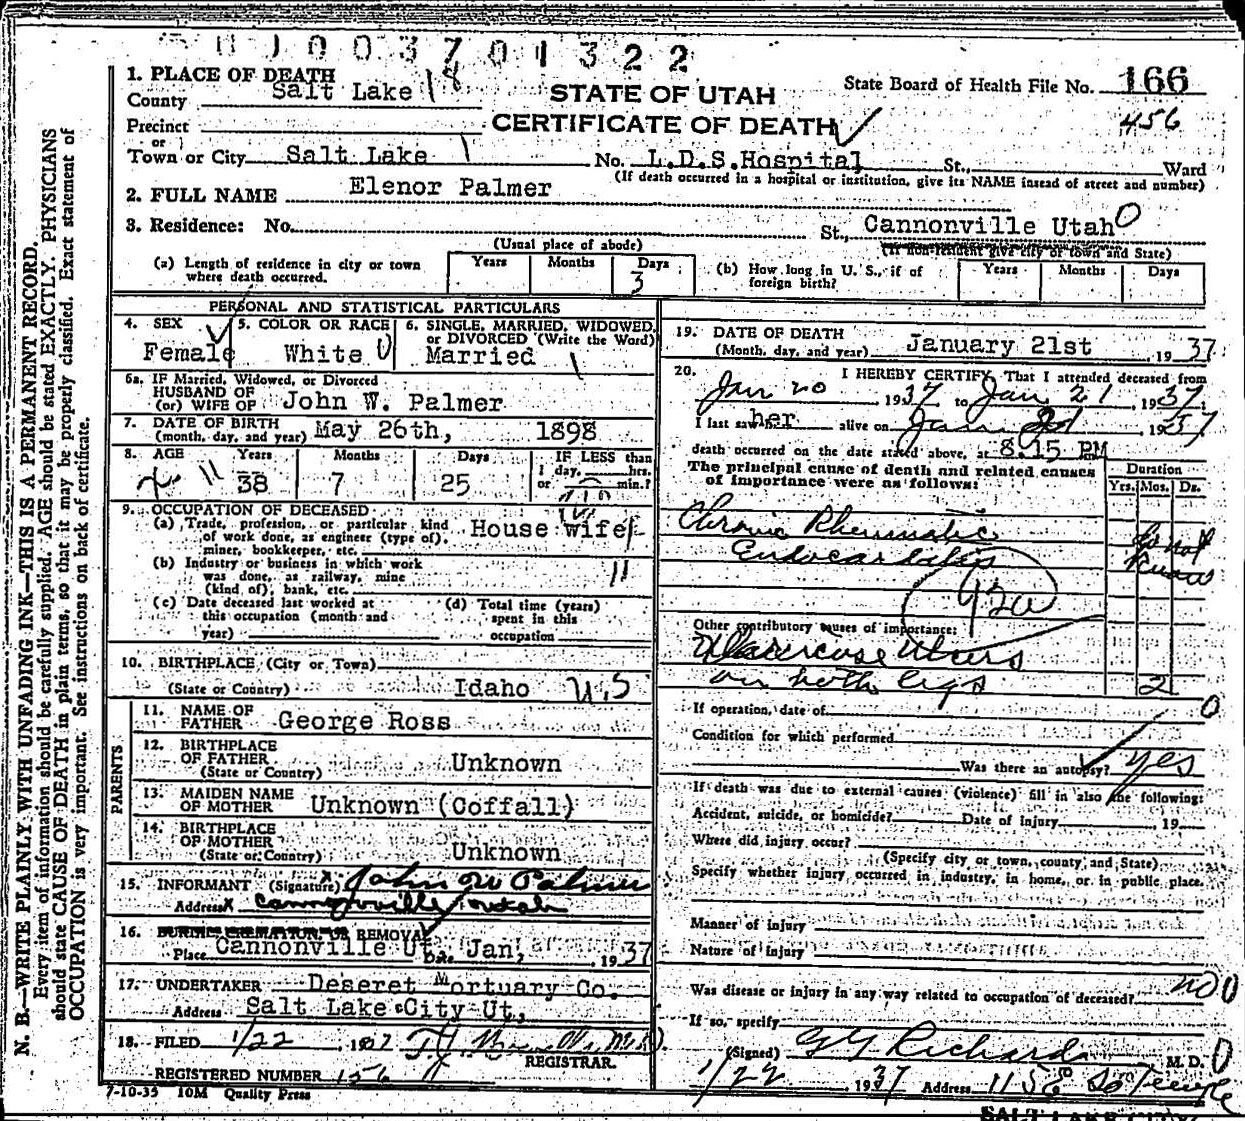 1003701322
1. PLACE OF DEATH
County Salt Lake 18
STATE OF UTAH
State Board of Health File No. 166
Precinct
or
CERTIFICATE OF DEATH
456
Town or City Salt Lake No. L.D.S.Hospital St., Ward
(If death occurred in a hospital or institution, give its NAME instead of street and number)
2. FULL NAME Elenor Palmer
3. Residence: No. St., Cannonville Utah 0
(Usual place of abode)
(If non-resident give city or town and State)
(a) Length of residence in city or town where death occurred. Years Months Days 3
(b) How long in U. S., if of foreign birth? Years Months Days
PERSONAL AND STATISTICAL PARTICULARS
4. SEX Female
5. COLOR OR RACE White
6. SINGLE, MARRIED, WIDOWED, or DIVORCED (Write the Word) Married
6a. IF Married, Widowed, or Divorced
HUSBAND OF
(or) WIFE OF John W. Palmer
7. DATE OF BIRTH
(month, day, and year) May 26th, 1898
8. AGE Years 38 Months 7 Days 25
IF LESS than
1 day, hrs.
or min.?
9. OCCUPATION OF DECEASED
(a) Trade, profession, or particular kind of work done, as engineer (type of), miner, bookkeeper, etc. House wife
(b) Industry or business in which work was done, as railway, mine (kind of), bank, etc. 11
(c) Date deceased last worked at this occupation (month and year)
(d) Total time (years) spent in this occupation
10. BIRTHPLACE (City or Town)
(State or Country) Idaho U.S
PARENTS
11. NAME OF FATHER George Ross
12. BIRTHPLACE OF FATHER
(State or Country) Unknown
13. MAIDEN NAME OF MOTHER Unknown (Coffall)
14. BIRTHPLACE OF MOTHER
(State or Country) Unknown
15. INFORMANT (Signature) x John W Palmer
Address x Cannonville, Utah
16. BURIAL CREMATION, OR REMOVAL
Place Cannonville Ut. Date Jan, 1937
17. UNDERTAKER Deseret Mortuary Co.
Address Salt Lake City Ut,
18. FILED 1/22 1937
REGISTRAR.
REGISTERED NUMBER 156
7-10-35 10M Quality Press
19. DATE OF DEATH
(Month, day, and year) January 21st 1937
20. I HEREBY CERTIFY, That I attended deceased from
Jan 20 1937 to Jan 21, 1937.
I last saw her alive on Jan 1937
death occurred on the date stated above, at 8.15 PM
The principal cause of death and related causes of importance were as follows:
Duration
Yrs. Mos. Ds.
Chronic Rheumatic
Endocarditis
Do not
Know
92a
Other contributory causes of importance:
Varicose Ulcers
on both legs 2
If operation, date of 0
Condition for which performed
Was there an autopsy? yes
If death was due to external causes (violence) fill in also the following:
Accident, suicide, or homicide? Date of injury , 19
Where did injury occur?
(Specify city or town, county, and State)
Specify whether injury occurred in industry, in home, or in public place.
Manner of injury
Nature of injury
Was disease or injury in any way related to occupation of deceased? no 0
If so, specify
(Signed) G G Richards M. D.
1/22, 1937 Address 115 E So Temple
SALT LAKE CITY
N. B.—WRITE PLAINLY WITH UNFADING INK—THIS IS A PERMANENT RECORD.
Every item of information should be carefully supplied. AGE should be stated EXACTLY. PHYSICIANS
should state CAUSE OF DEATH in plain terms, so that it may be properly classified. Exact statement of
OCCUPATION is very important. See instructions on back of certificate.